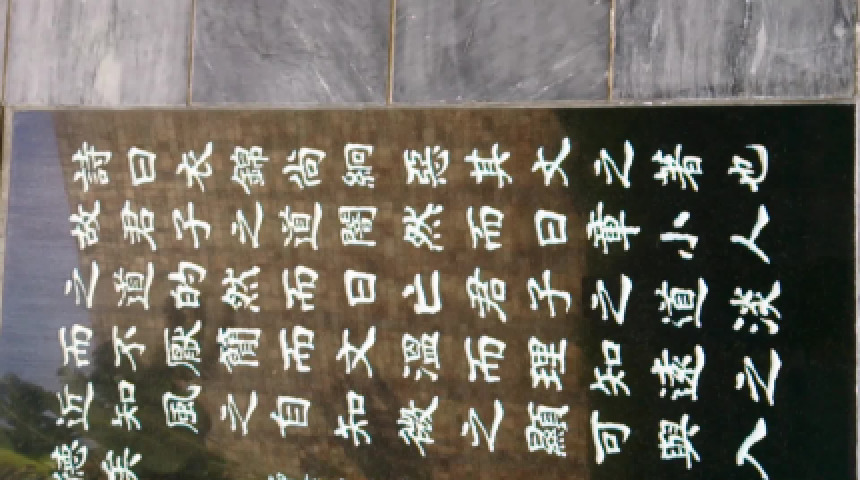 詩曰衣錦尚絅惡其文之著也
故君子之道闇然而日章小人
之道的然而日亡君子之道淡
而不厭簡而文溫而理知遠之
近知風之自知微之顯可與入
德矣